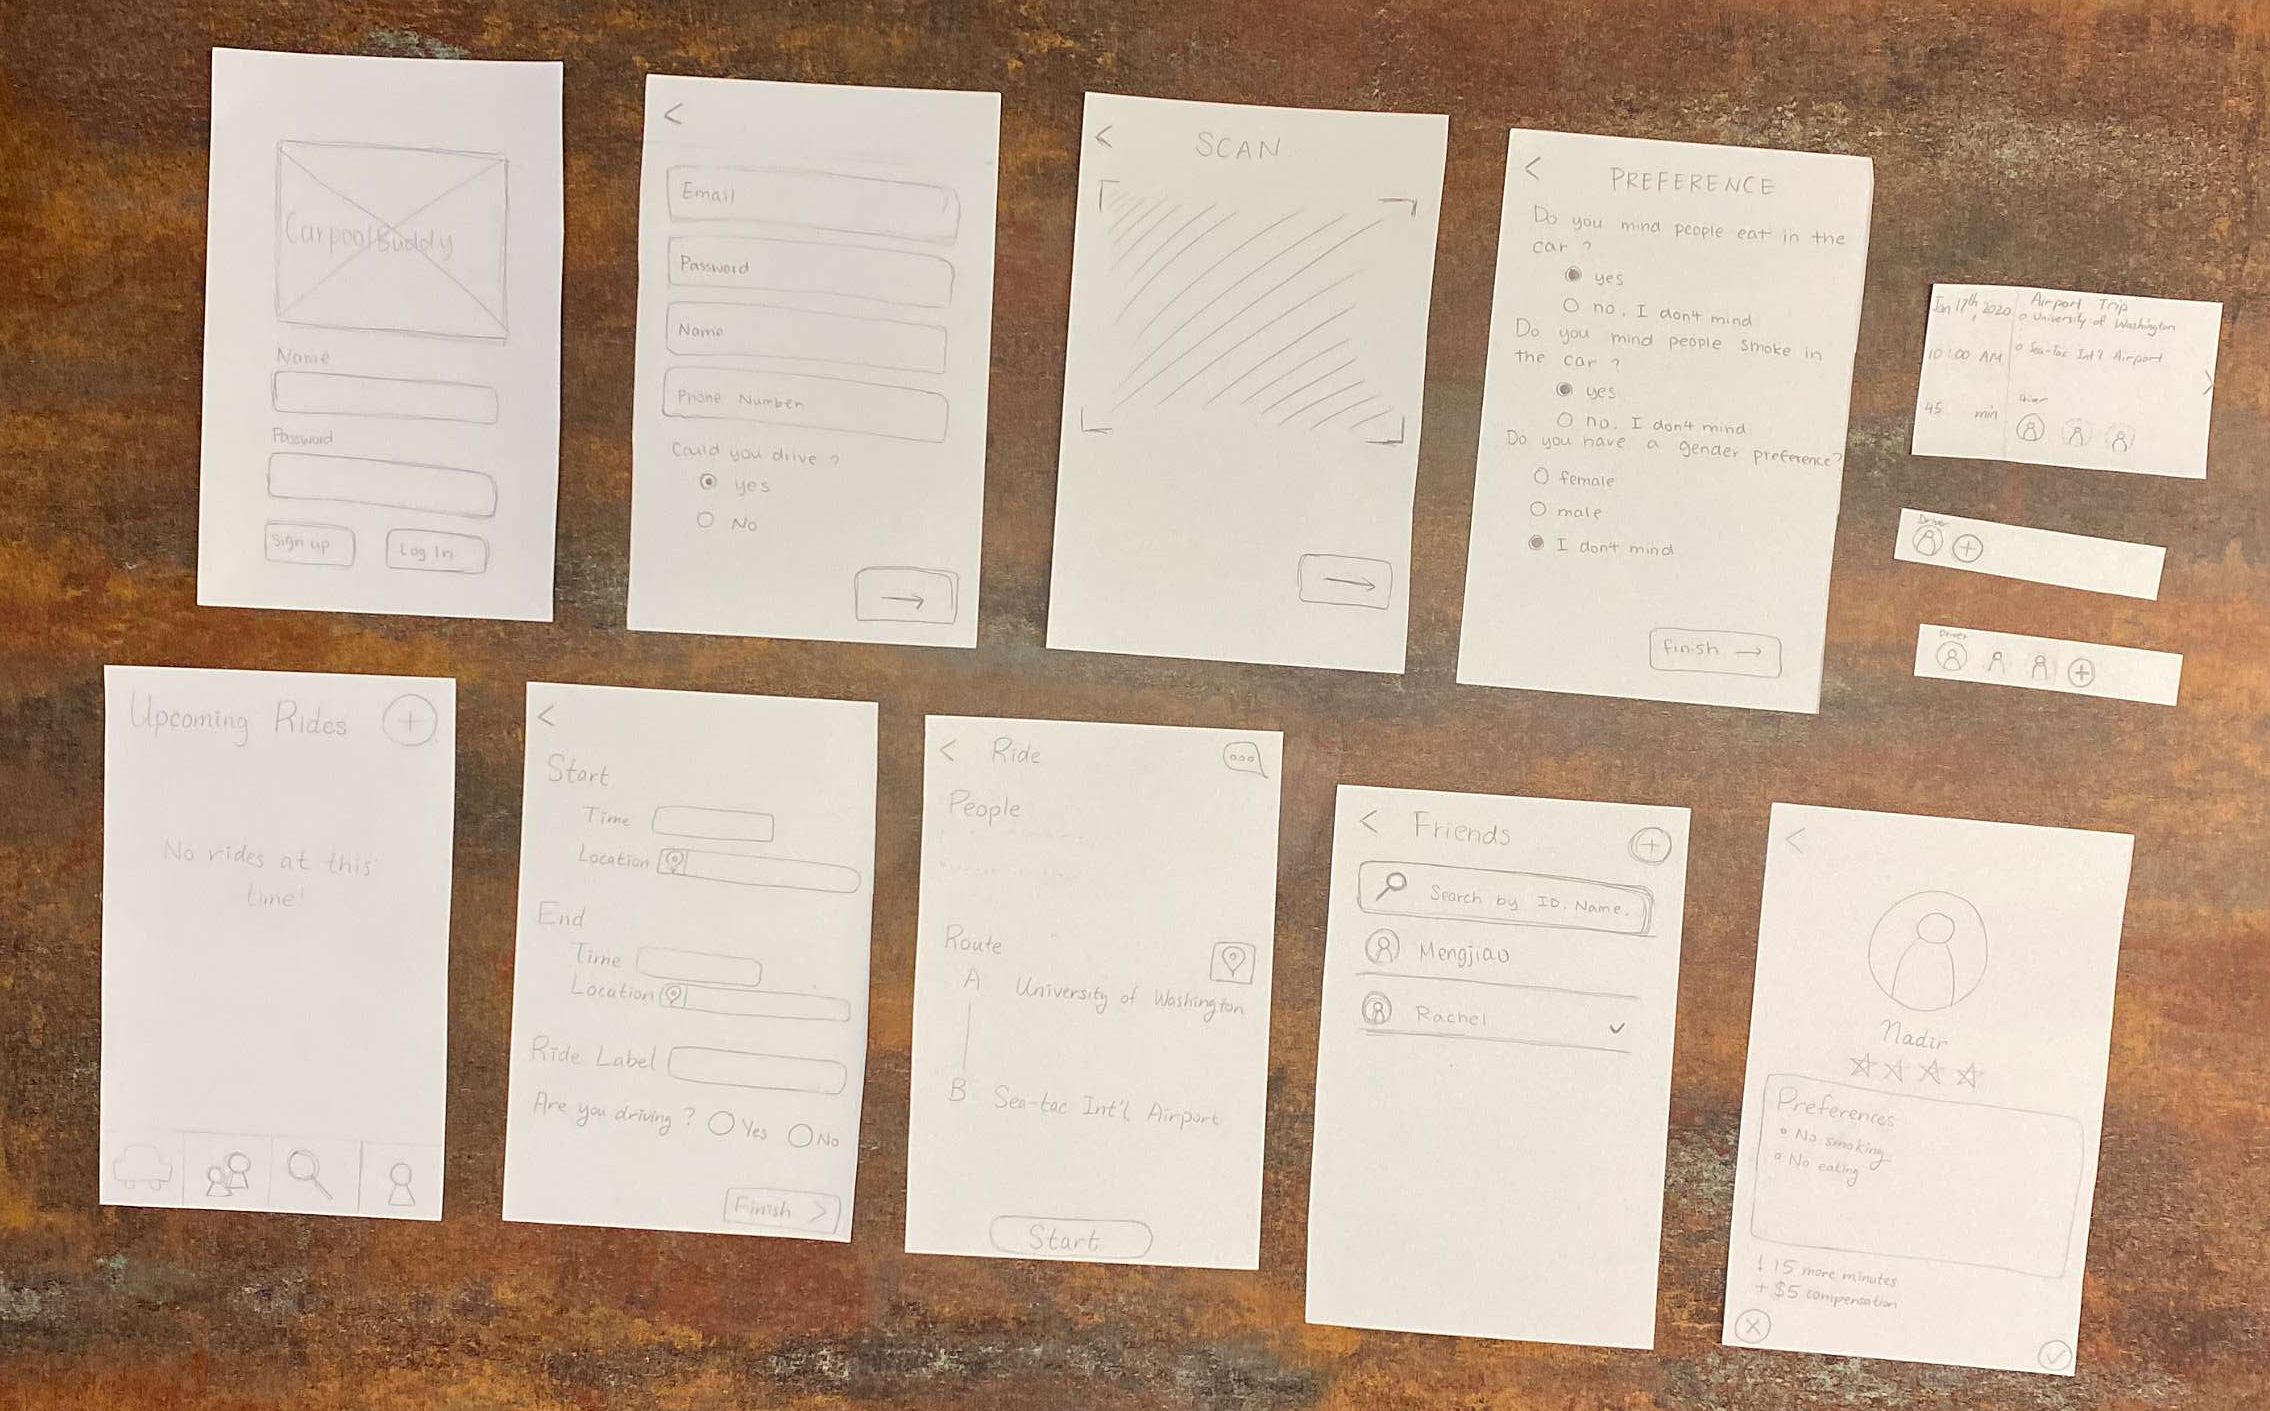 Carpool Buddy
Name
Password
Sign up
Log In
<
Email
Password
Name
Phone Number
Could you drive ?
yes
No
→
<
SCAN
→
<
PREFERENCE
Do you mind people eat in the
car ?
yes
no, I don't mind
Do you mind people smoke in
the car ?
yes
no, I don't mind
Do you have a gender preference?
female
male
I don't mind
finish →
Jan 17th, 2020
10:00 AM
45 min
Airport Trip
University of Washington
Sea-Tac Int'l Airport
Driver
>
Driver
+
Driver
+
Upcoming Rides +
No rides at this
time!
<
Start
Time
Location
End
Time
Location
Ride Label
Are you driving ? Yes No
Finish >
< Ride
People
Route
A University of Washington
B Sea-tac Int'l Airport
Start
< Friends +
Search by ID, Name.
Mengjiao
Rachel ✓
<
Nadir
Preferences
• No smoking
• No eating
15 more minutes
+ $5 compensation